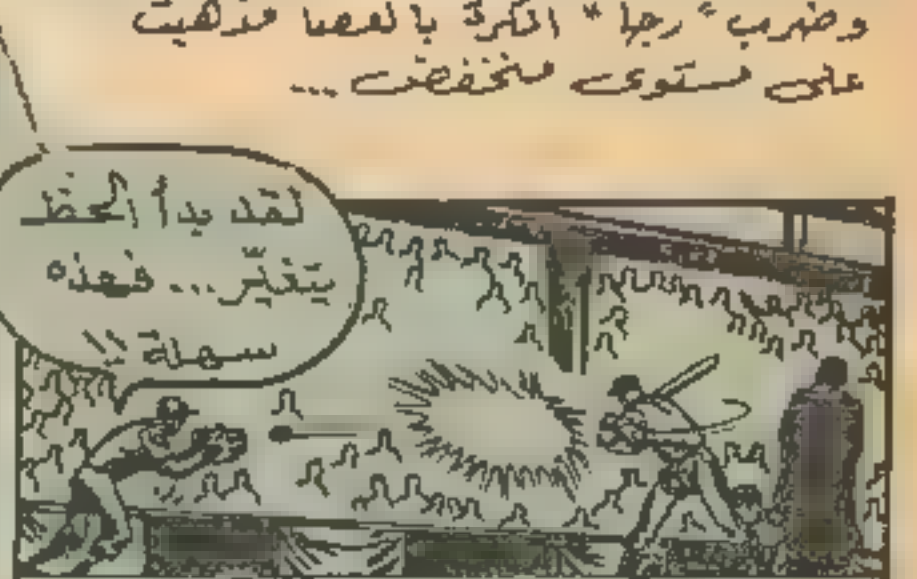 وضرب "رجا" الكرة بالعصا فذهبت
على مستوى منخفض...
لقد بدأ الحظ
يتغيّر... فهذه
سهلة !!